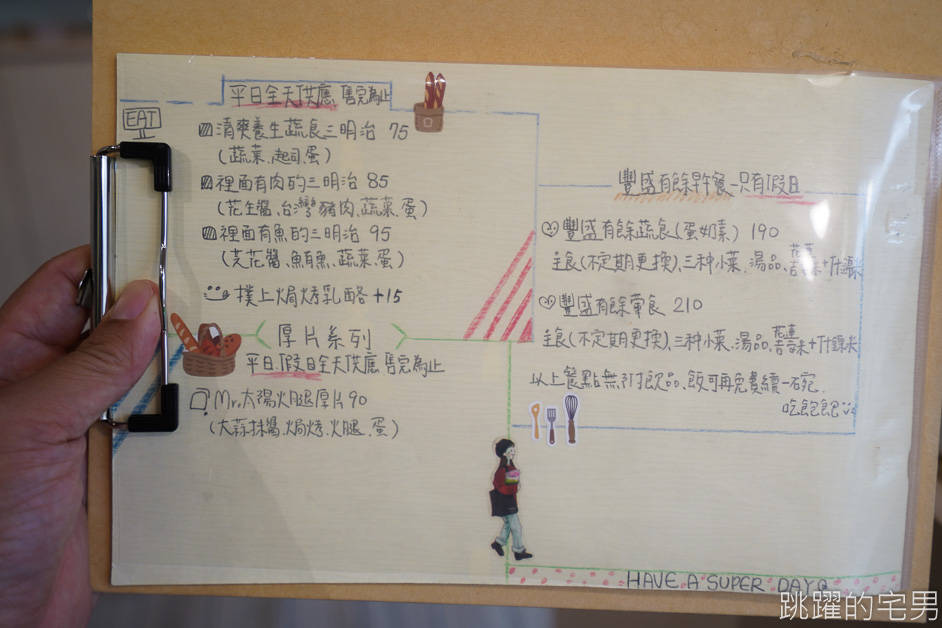 平日全天供應 售完為止
EAT
清爽養生蔬食三明治 75
(蔬菜、起司、蛋)
裡面有肉的三明治 85
(花生醬、台灣豬肉、蔬菜、蛋)
裡面有魚的三明治 95
(芫花醬、鮪魚、蔬菜、蛋)
撲上焗烤乳酪 +15
厚片系列
平日、假日全天供應 售完為止
Mr.太陽火腿厚片 90
(大蒜抹醬、焗烤、火腿、蛋)
豐盛有餘早午餐-只有假日
豐盛有餘蔬食(蛋奶素) 190
主食(不定期更換)、三种小菜、湯品、花蓮
豐盛有餘葷食 210
主食(不定期更換)、三种小菜、湯品、花蓮
以上餐點無附飲品、飯可再免費續一碗.
吃飽飽
HAVE A SUPER DAY
跳躍的宅男